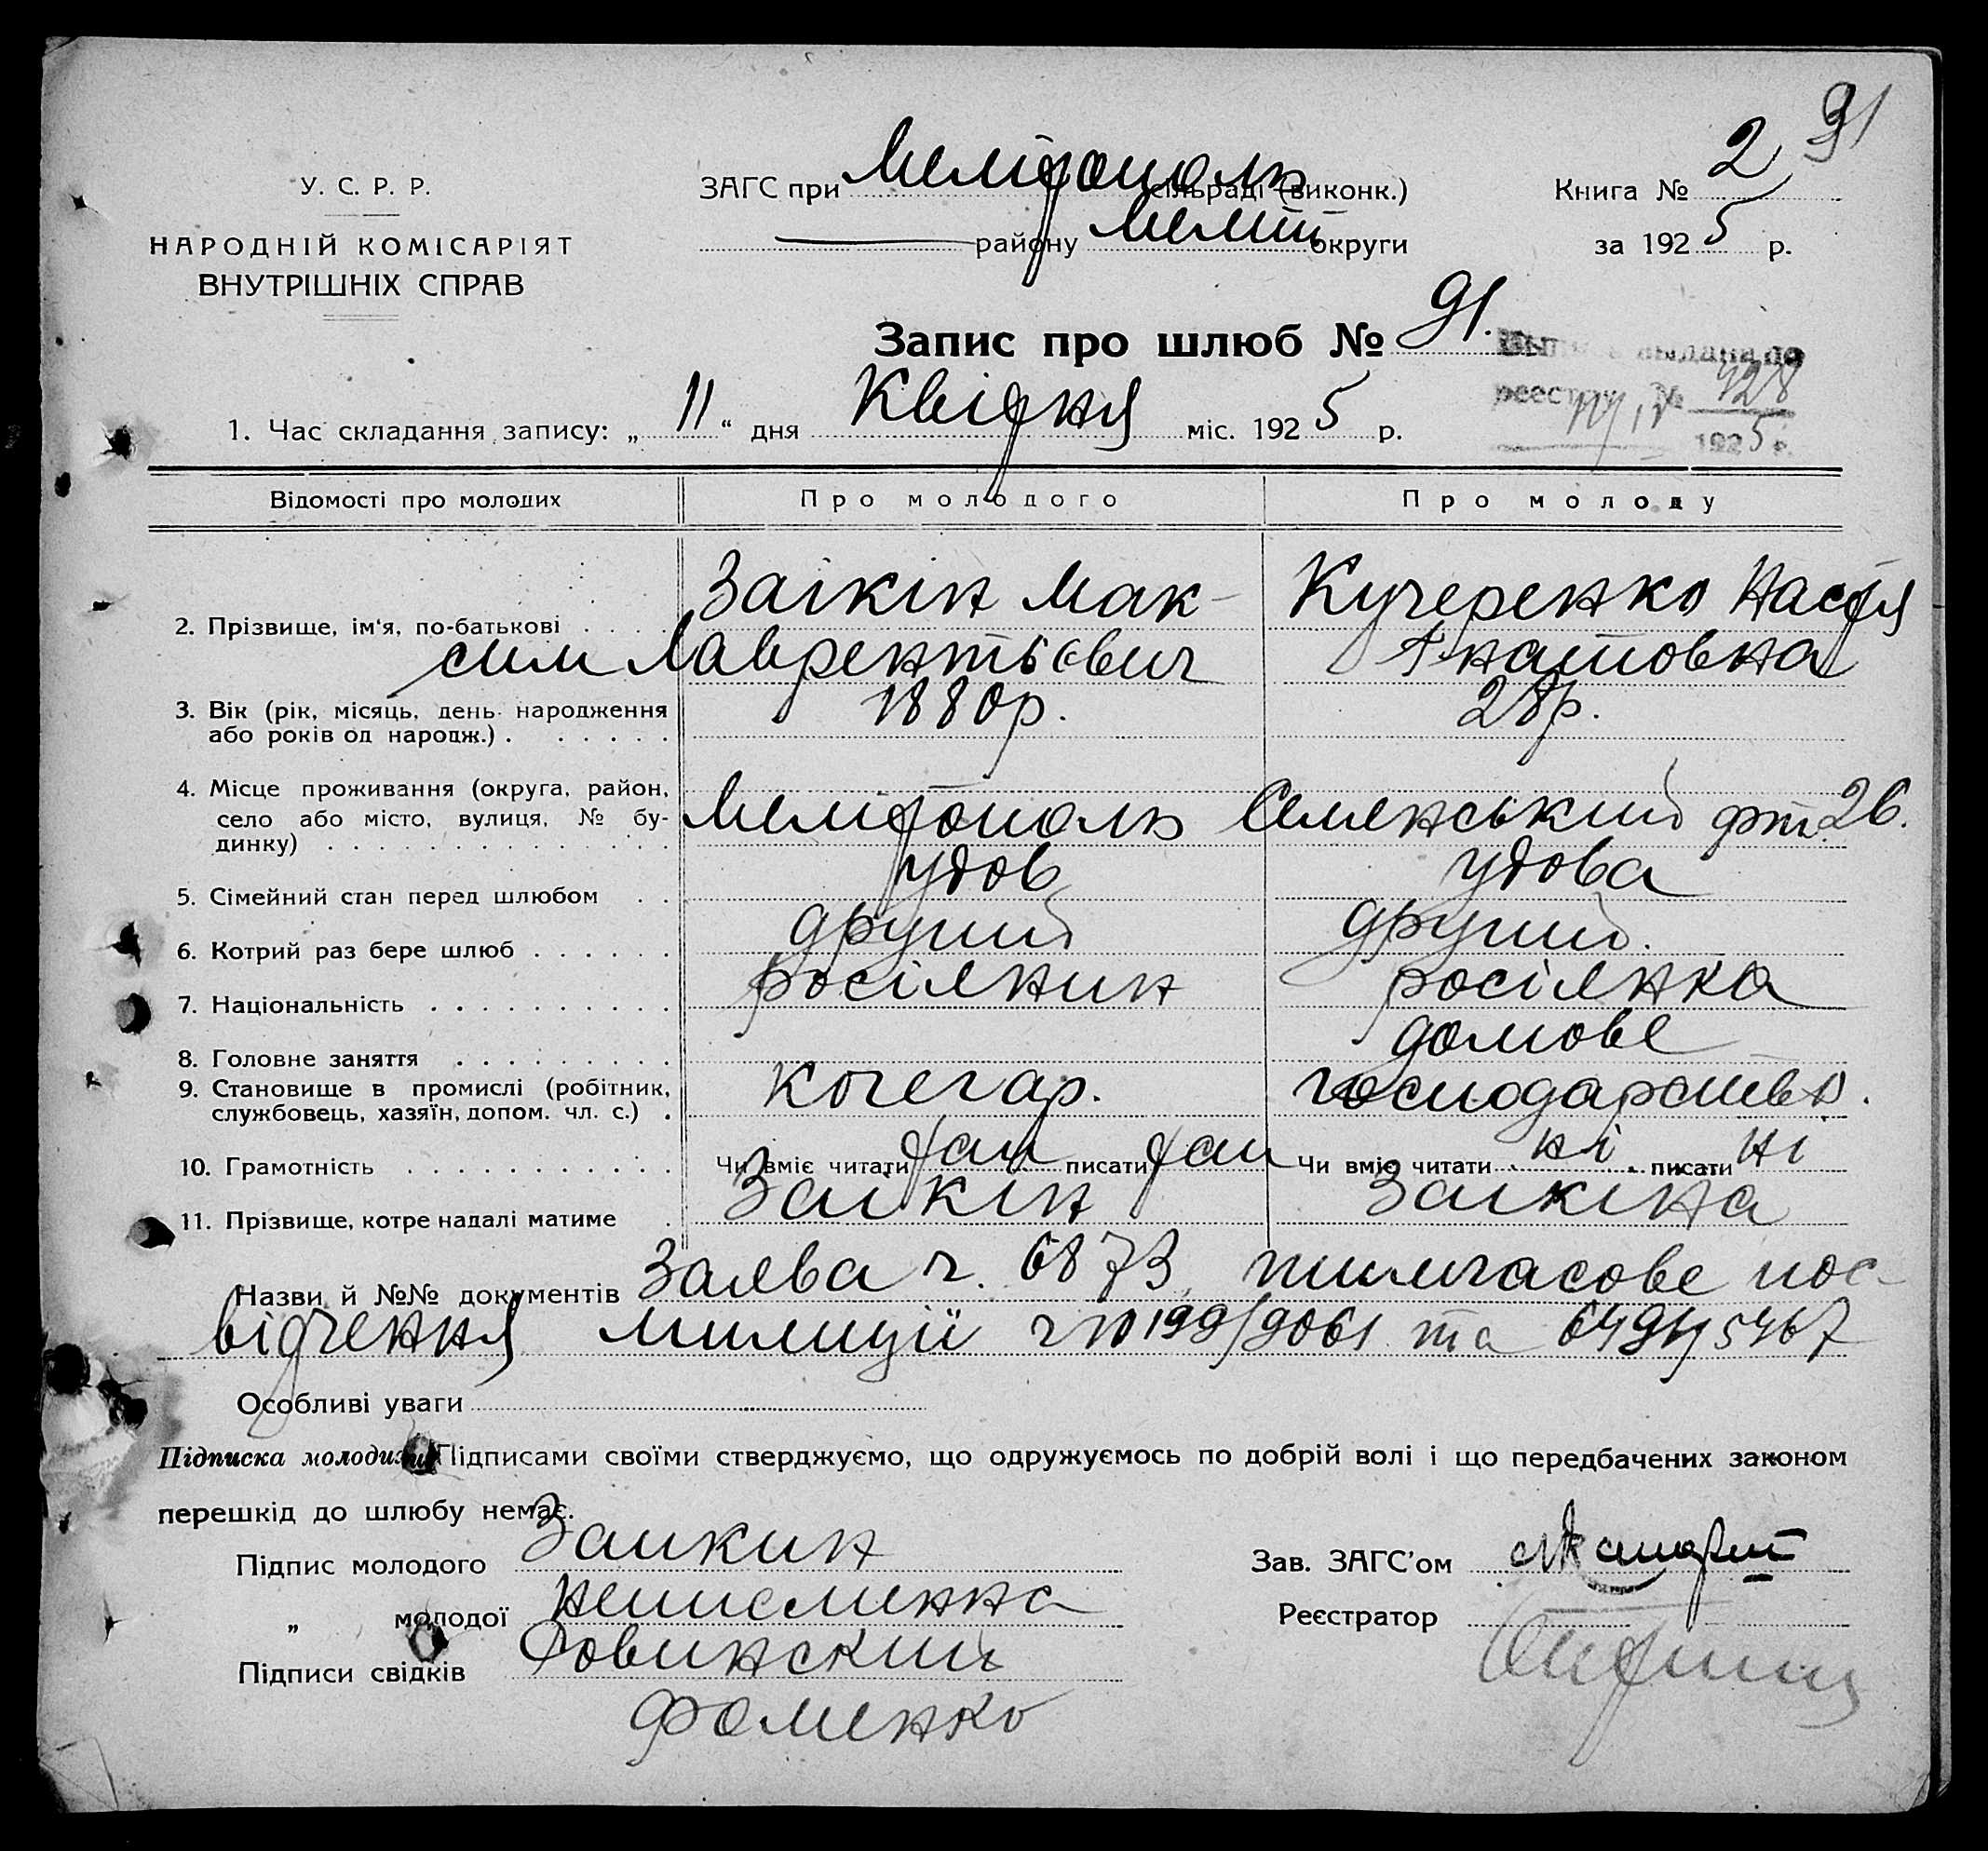 91
У. С. Р. Р.
НАРОДНІЙ КОМІСАРІЯТ
ВНУТРІШНІХ СПРАВ
ЗАГС при Мелітополь сільраді (виконк.)
району Меліт округи
Книга № 2
за 1925 р.
Запис про шлюб № 91.
выдана по
реестру № 428
1925 г.
1. Час складання запису: „ 11 “ дня Квітня міс. 1925 р.
Відомості про молодих Про молодого Про молоду
2. Прізвище, ім'я, по-батькові Заікін Мак- Кучеренко Настя
сим Лаврентьєвич Гнатовна
3. Вік (рік, місяць, день народження 1880р. 28р.
або років од народж.)
4. Місце проживання (округа, район,
село або місто, вулиця, № бу- Мелітополь Семенський 26.
динку)
5. Сімейний стан перед шлюбом удов удова
6. Котрий раз бере шлюб другий другий.
7. Національність росіянин росіянка
8. Головне заняття домове
9. Становище в промислі (робітник, кочегар. господарство.
службовець, хазяїн, допом. чл. с.)
10. Грамотність Чи вміє читати так писати так Чи вміє читати ні писати ні
11. Прізвище, котре надалі матиме Заікін Заікіна
Назви й №№ документів Заява ч. 6873, тимчасове пос-
відчення милиції 199/9061 та 6494/5467
Особливі уваги
Підписка молодих: Підписами своїми стверджуємо, що одружуємось по добрій волі і що передбачених законом
перешкід до шлюбу немає.
Підпис молодого Заикин
„ молодої неписменна
Підписи свідків Ровинский
Фоменко
Зав. ЗАГС'ом
Реєстратор